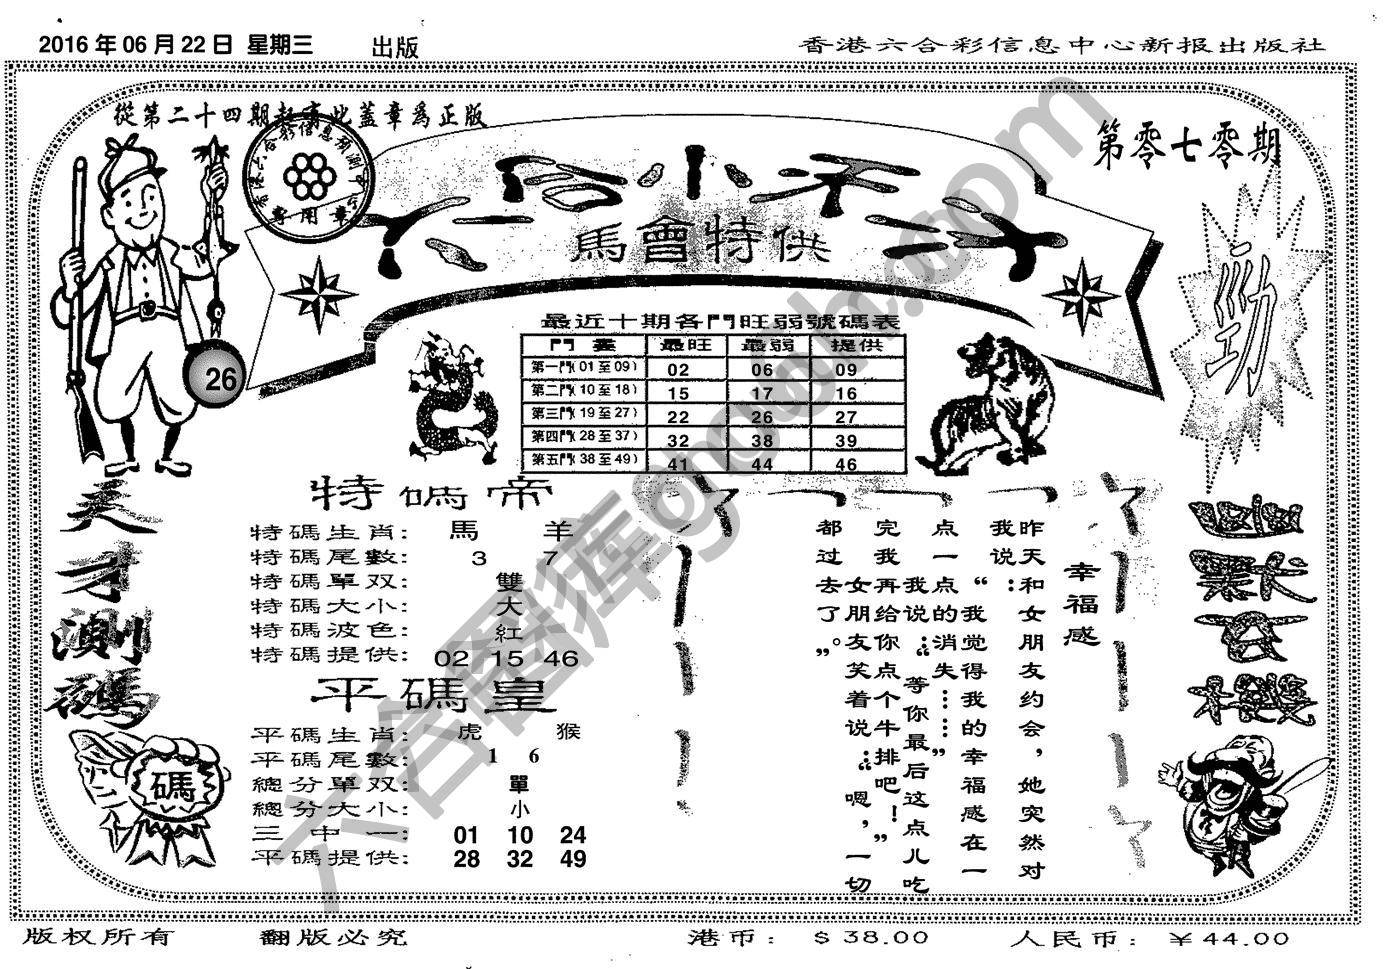 2016 年 06 月 22 日 星期三 出版
香港六合彩信息中心新报出版社
從第二十四期起寄此蓋章爲正版
第零七零期
專用章
馬會特供
勁
26
最近十期各門旺弱號碼表
最旺 最弱 提供
第一門(01至09) 02 06 09
第二門(10至18) 15 17 16
第三門(19至27) 22 26 27
第四門(28至37) 32 38 39
第五門(38至49) 41 44 46
天才測碼
碼
特碼帝
特碼生肖: 馬 羊
特碼尾數: 3 7
特碼單双: 雙
特碼大小: 大
特碼波色: 紅
特碼提供: 02 15 46
平碼皇
平碼生肖: 虎 猴
平碼尾數: 1 6
總分單双: 單
總分大小: 小
三中一: 01 10 24
平碼提供: 28 32 49
幸福感
昨天和女朋友约会，她突然对
我说：“我觉得我的幸福感在一
点一点的消失……”
我说：“等你最后这点儿吃
完我再给你点个牛排吧！”
女朋友笑着说：“嗯，一切
都过去了。”
六合图库ghcdh.com
版权所有
翻版必究
港币: $38.00
人民币: ￥44.00